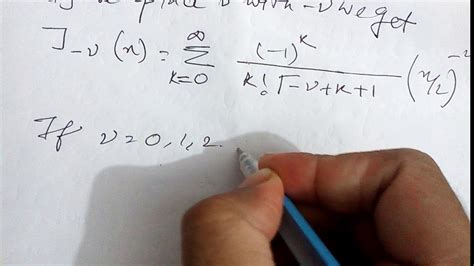 replace ν with -ν we get
J_{-ν}(x) = ∑_{k=0}^{∞} (-1)^k / k! Γ-ν+k+1 (x/2)^{-
If ν = 0, 1, 2.